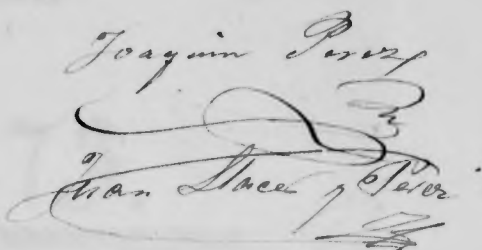 Joaquin Perez
Juan Llacé y Perez